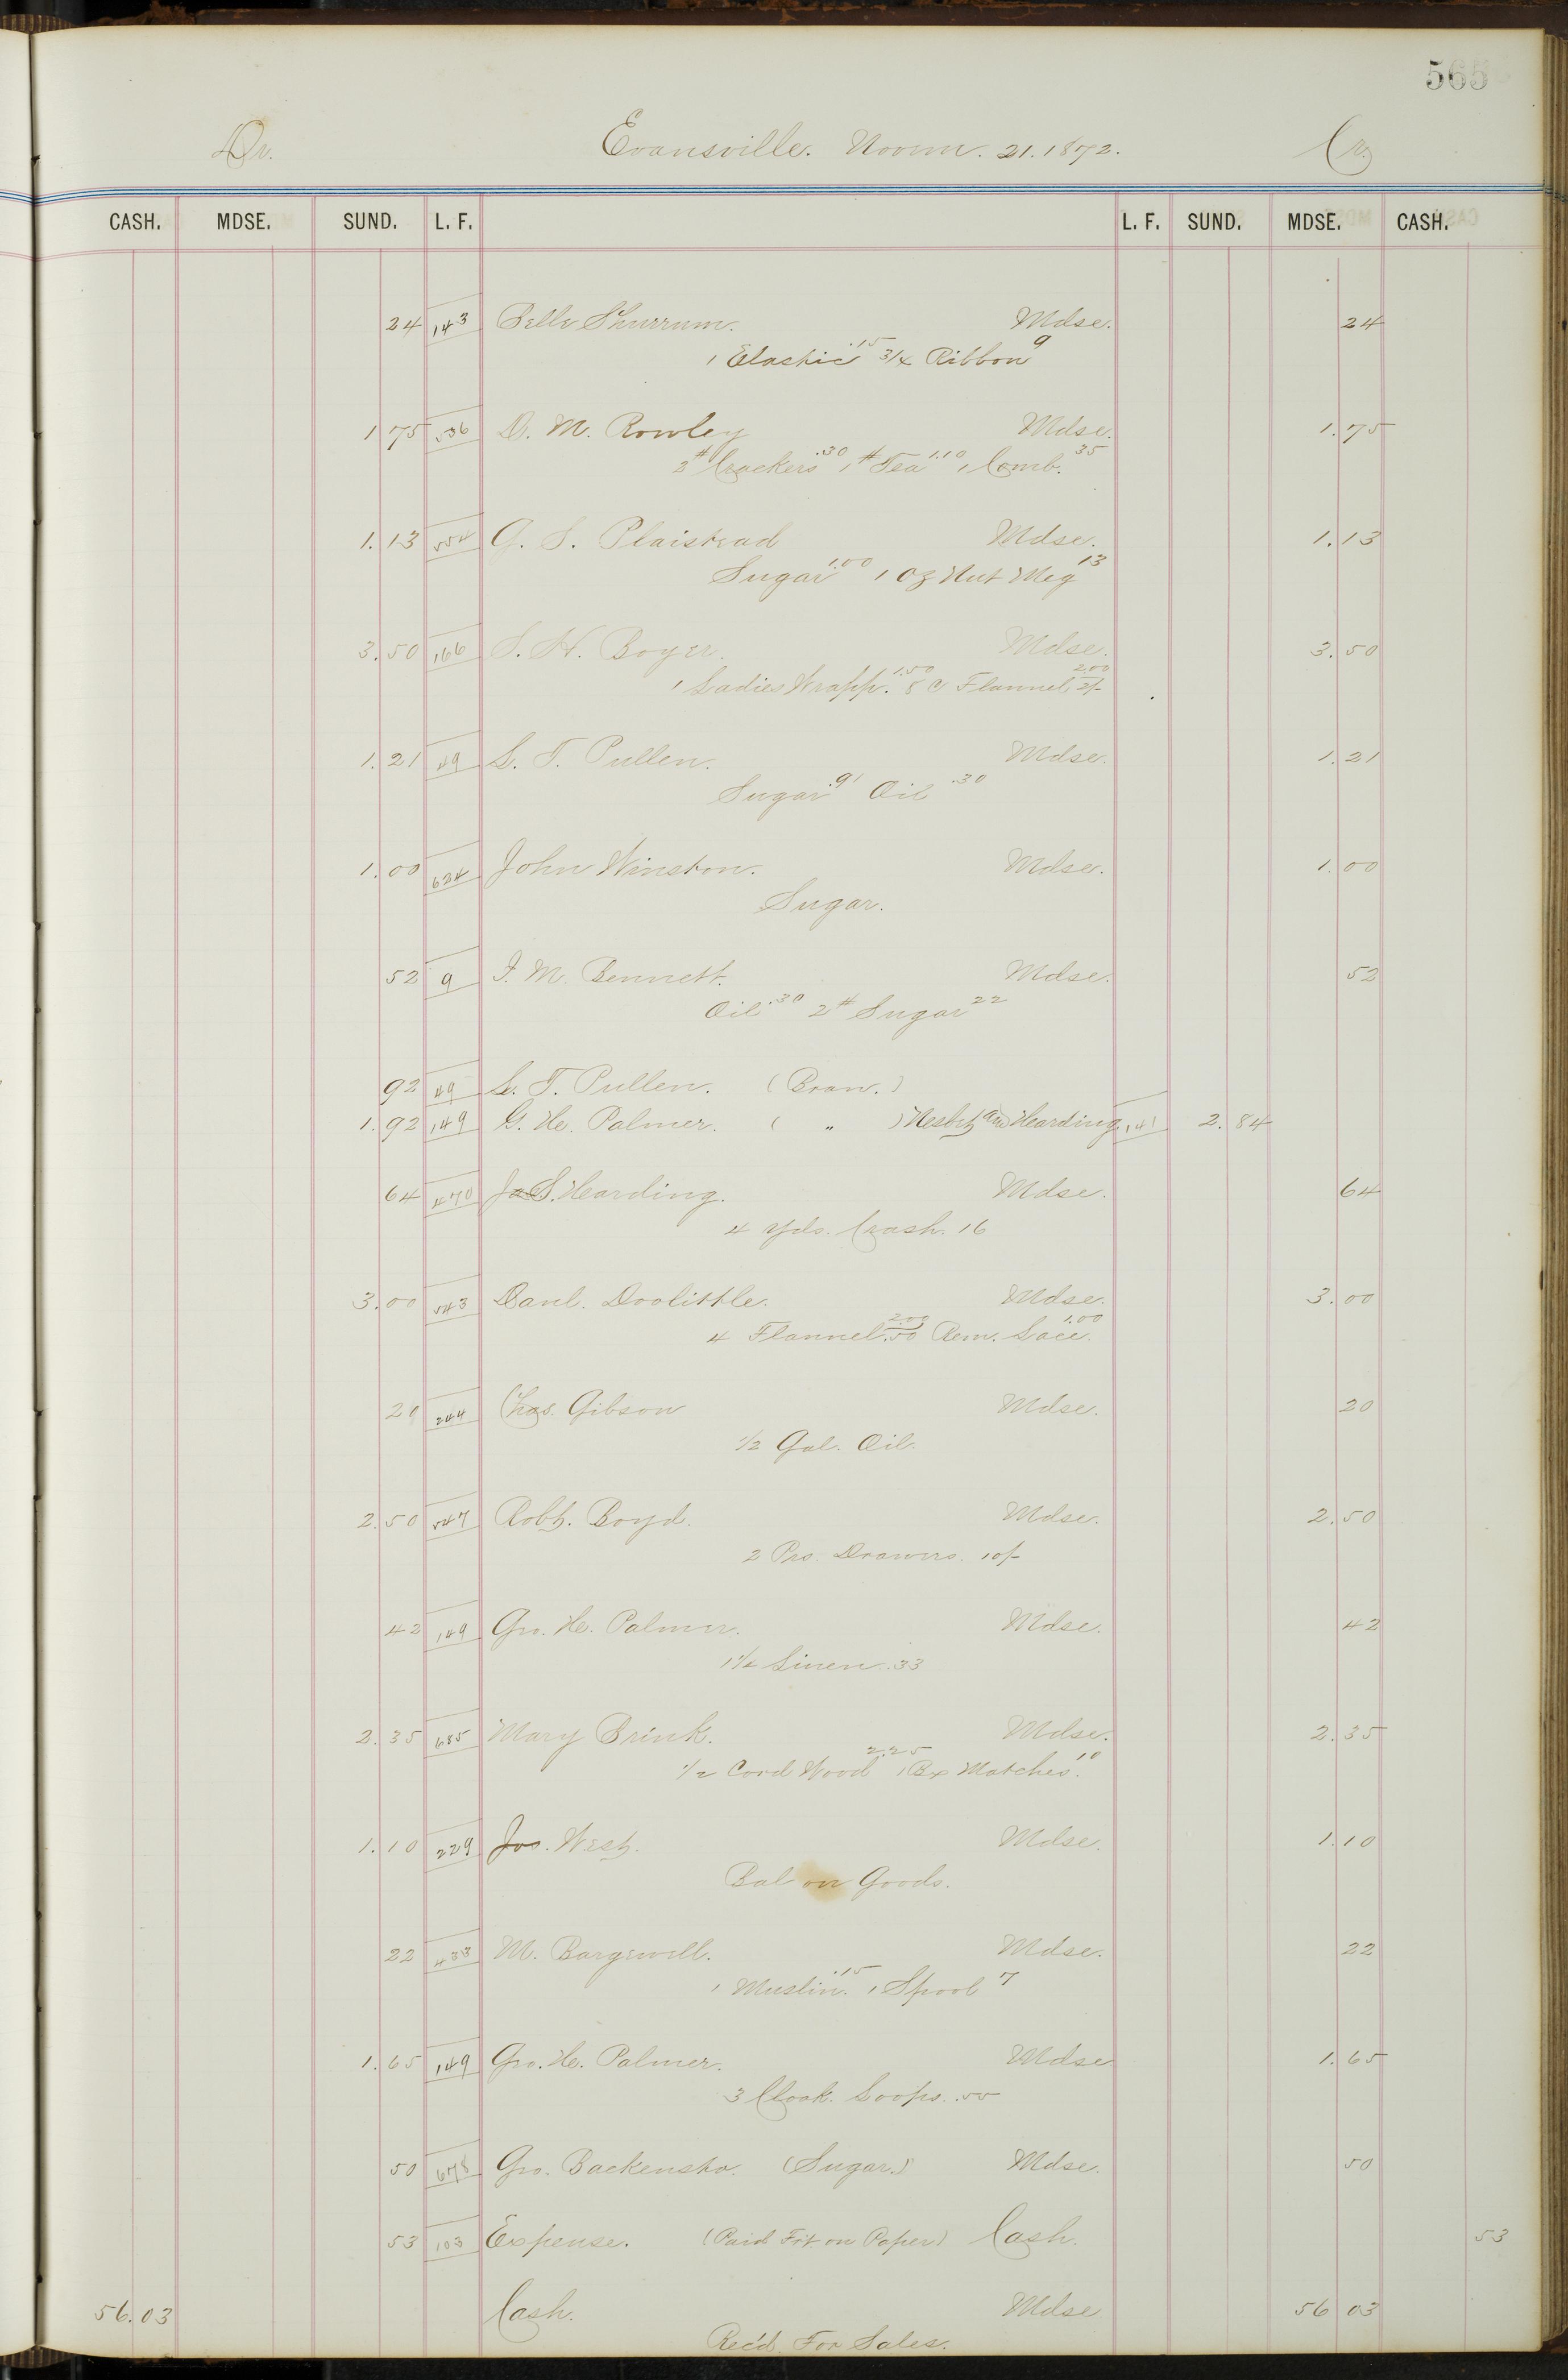 565
Dr. Evansville. Novem. 21. 1872. Cr.
CASH. MDSE. SUND. L. F. L. F. SUND. MDSE. CASH.
24 143 Belle Shurrum. Mdse. 24
1 Elastic .15 3/4 Ribbon 9
1 75 536 D. M. Rowley Mdse. 1.75
2# Crackers .30 1# Tea 1.10 1 Comb. 35
1.13 554 G. S. Plaistead Mdse. 1.13
Sugar 1.00 1 Oz Nut Meg 13
3.50 166 S. H. Boyer. Mdse. 3.50
1 Ladies Wrapp. 1.50 8 C Flannel 2/- 2.00
1.21 49 L. T. Pullen. Mdse. 1.21
Sugar .91 Oil .30
1.00 624 John Winston. Mdse. 1.00
Sugar.
52 9 I. M. Bennett. Mdse. 52
Oil .30 2# Sugar 22
92 49 L. T. Pullen. (Bran.)
1.92 149 G. H. Palmer. ( " ) Nesbit and Hearding. 141 2.84
64 470 Harding. Mdse. 64
4 Yds. Crash. 16
3.00 543 Danl. Doolittle. Mdse. 3.00
4 Flannel .50 2.00 Rem. Lace. 1.00
20 244 Chas. Gibson Mdse. 20
1/2 Gal. Oil.
2.50 547 Robt. Boyd. Mdse. 2.50
2 Prs. Drawers. 10/-
42 149 Geo. H. Palmer. Mdse. 42
1 1/4 Linen .33
2.35 685 Mary Brink. Mdse. 2.35
1/2 Cord Wood 2.25 1 Bx Matches. 10
1.10 229 Jas. West. Mdse. 1.10
Bal on Goods.
22 433 M. Bargewell. Mdse. 22
1 Muslin. .15 1 Spool 7
1.65 149 Geo. H. Palmer. Mdse 1.65
3 Cloak. Loops. .55
50 678 Geo. Backensto. (Sugar.) Mdse. 50
53 103 Expense. (Paid Frt on Paper) Cash. 53
56.03 Cash. Mdse 56 03
Rec'd For Sales.